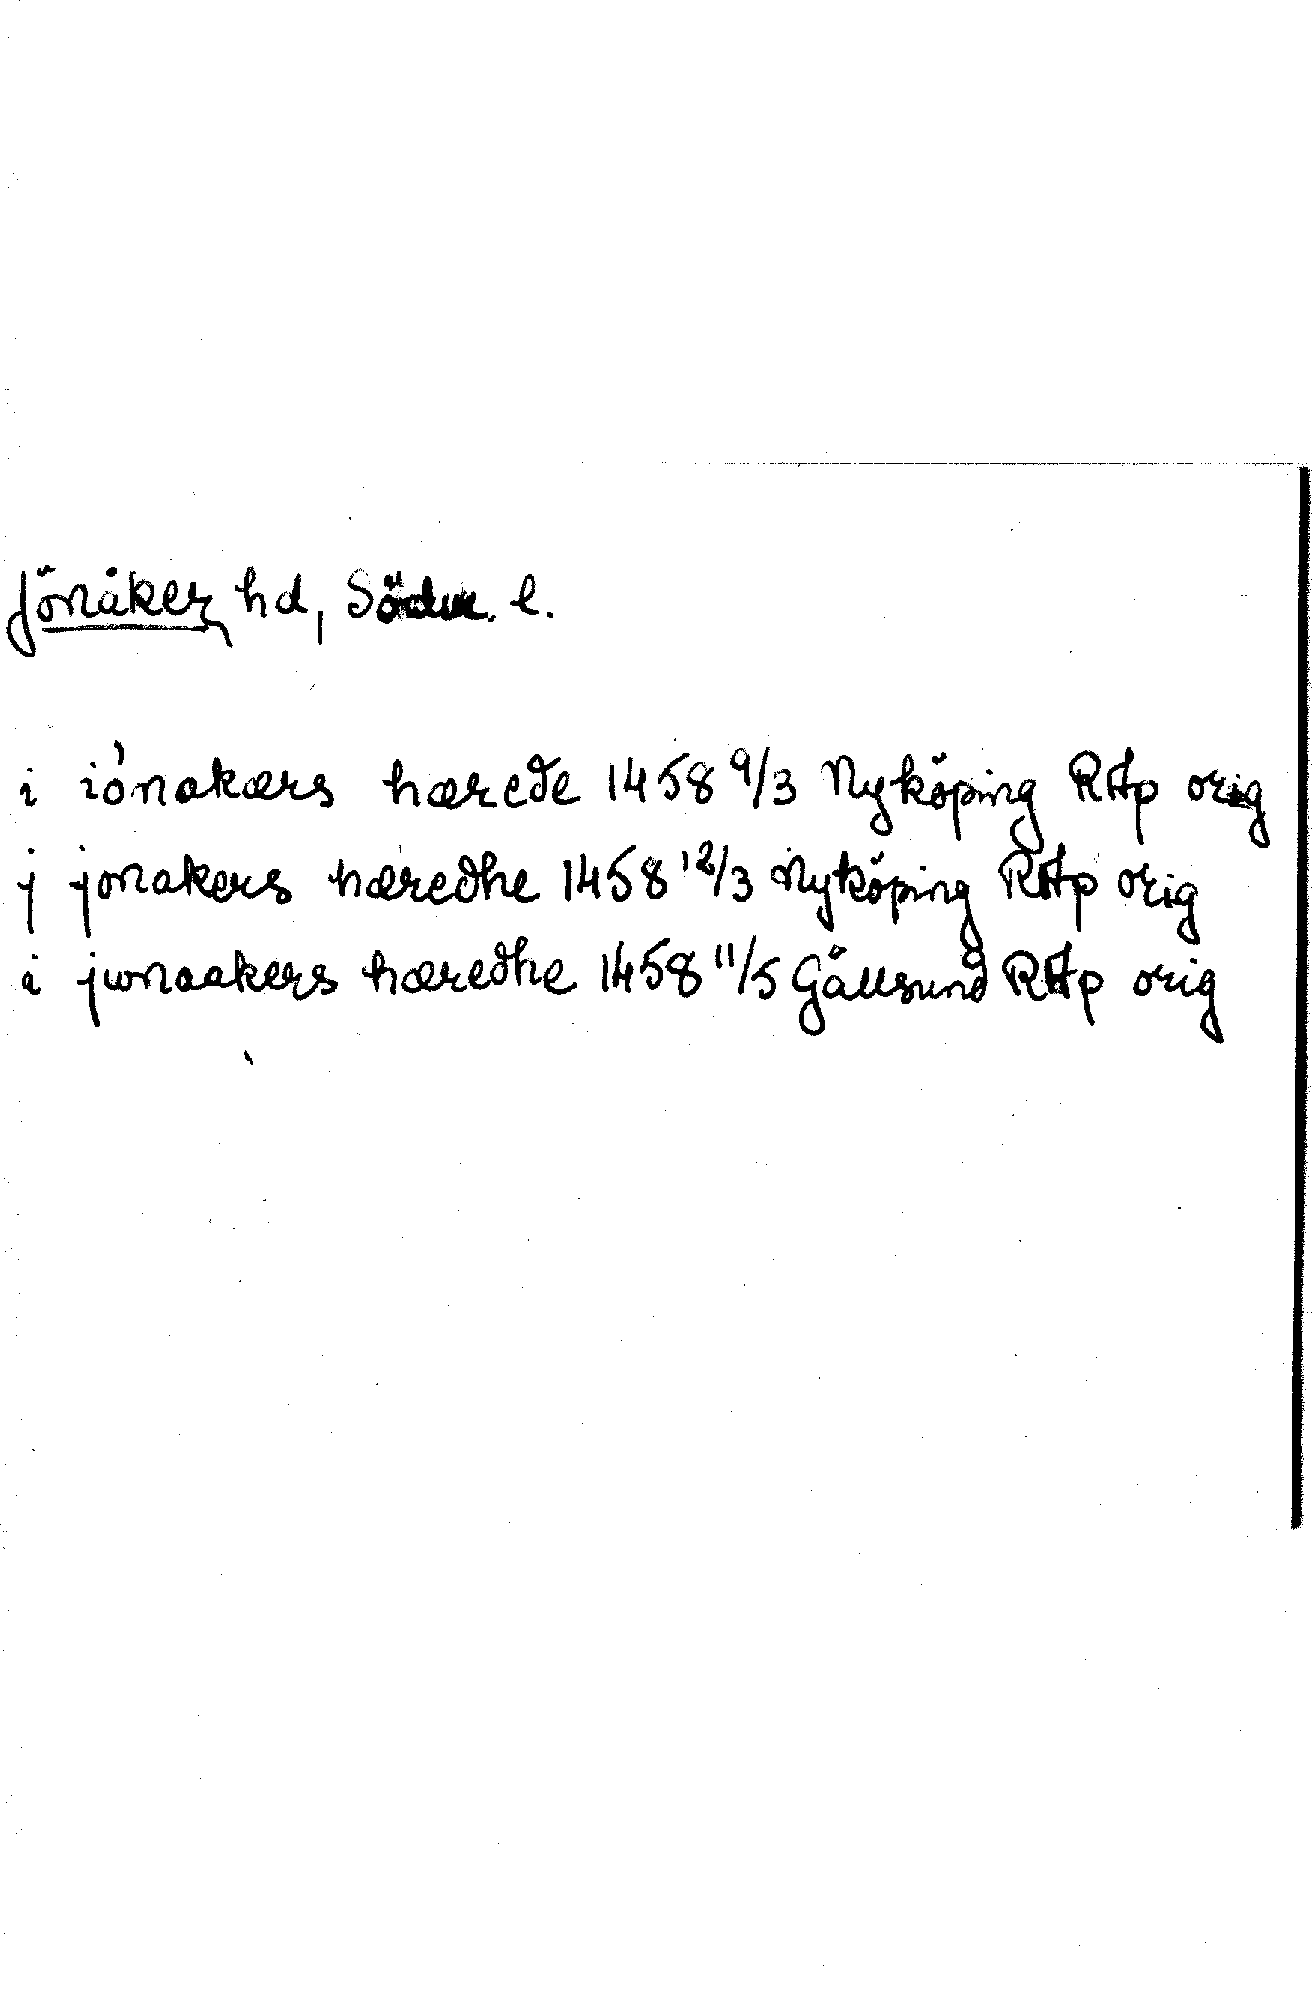 Jönåker, hd, Söderm. l.
i iónakærs hærede 1458 9/3 Nyköping RAp orig
j jonakers hæredhe 1458 12/3 Nyköping RAp orig
i jwnaakers hæredhe 1458 11/5 Gällsund RAp orig